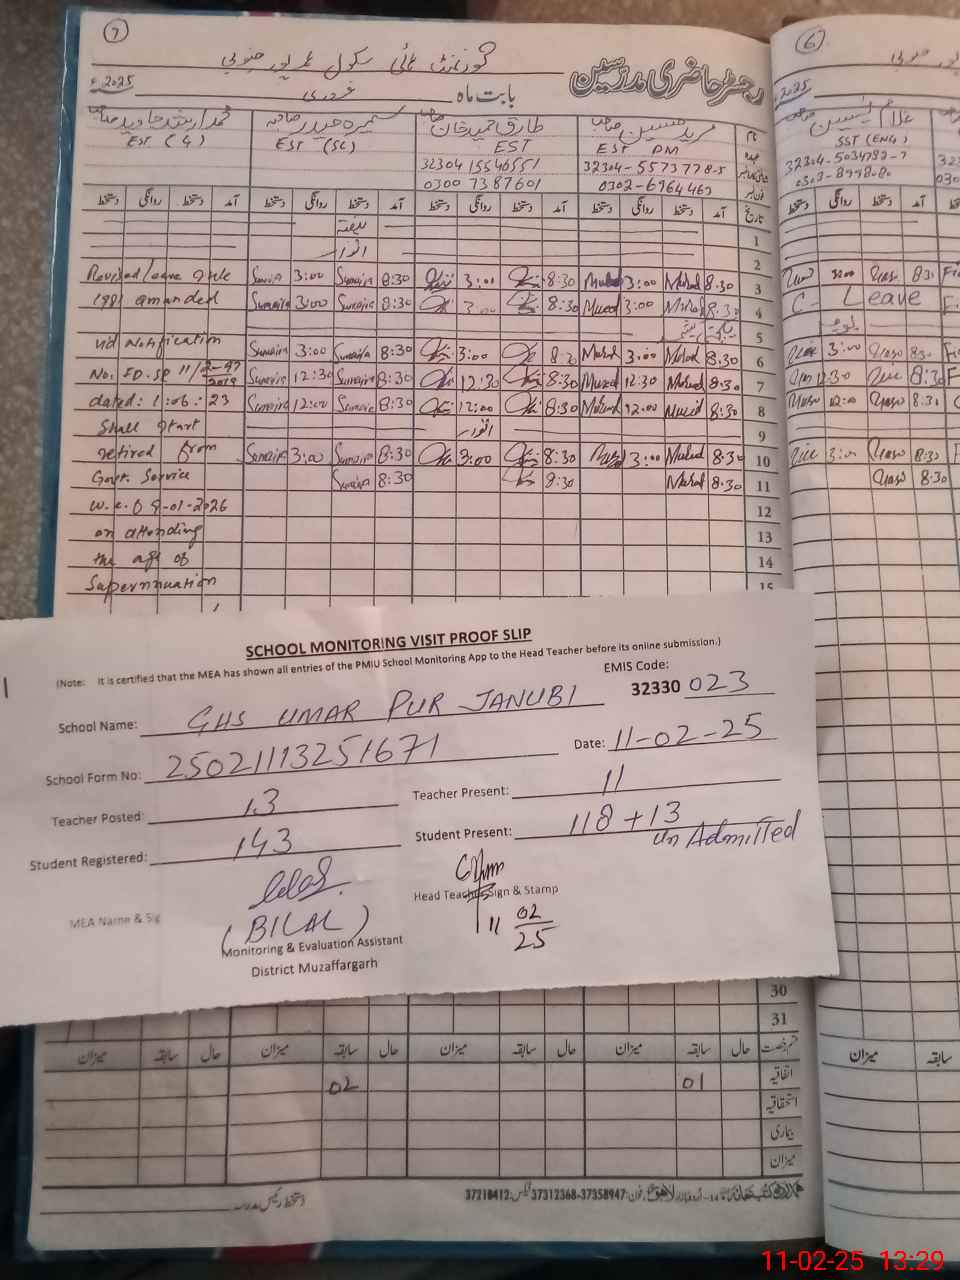 7
گورنمنٹ ہائی سکول عمر پور جنوبی
رجسٹر حاضری مدرسین
بابت ماہ فروری 2025ء
محمد ارشد جاوید صاحب سمیرہ حیدر صاحبہ طارق حمید خان صاحب مرید حسین صاحب نام
EST (G) EST (SC) EST EST PM عہدہ
32304 15546551 32304-5573778-5
0300 7387601 0302-6964463
دستخط روانگی دستخط آمد دستخط روانگی دستخط آمد دستخط روانگی دستخط آمد دستخط روانگی دستخط آمد تاریخ
ہفتہ 1
اتوار 2
Revised leave Rule Sumaira 3:00 Sumaira 8:30 3:00 8:30 Murid 3:00 Murid 8.30 3
1981 amanded Sumaira 3:00 Sumaira 8:30 3:00 8:30 Mureed 3:00 Murid 8.30 4
5
vid Notification Sumaira 3:00 Sumaira 8:30 3:00 8:30 Murid 3:00 Murid 8.30 6
No. ED.SR 11/2-97/2019 Sumaira 12:30 Sumaira 8:30 12:30 8:30 Mureed 12.30 Mureed 8.30 7
dated: 1:06:23 Sumaira 12:00 Sumaira 8:30 12:00 8:30 Murid 12.00 Murid 8.30 8
Shall start اتوار 9
retired from Sumaira 3:00 Sumaira 8:30 3:00 8:30 Murid 3:00 Murid 8.30 10
Govt. Service Sumaira 8:30 8:30 Murid 8.30 11
w.e.0 9-01-2026 12
on attending 13
the age of 14
Supernnuation 15
6
2025
غلام یٰسین
SST (ENG)
32304-5034792-7
دستخط روانگی دستخط آمد
3:00 8:3
C- Leave
3:00 8:30
12:30 8:30
12:00 8.30
3:00 8:30
8:30
SCHOOL MONITORING VISIT PROOF SLIP
(Note: It is certified that the MEA has shown all entries of the PMIU School Monitoring App to the Head Teacher before its online submission.)
EMIS Code:
School Name: GHS UMAR PUR JANUBI 32330 023
School Form No: 25021113251671 Date: 11-02-25
Teacher Posted: 13 Teacher Present: 11
Student Registered: 143 Student Present: 118 + 13
Un Admitted
MEA Name & Sig Head Teacher Sign & Stamp
(BILAL) 11 02/25
Monitoring & Evaluation Assistant
District Muzaffargarh
30
31
میزان سابقہ حال میزان سابقہ حال میزان سابقہ حال میزان سابقہ حال قسم رخصت
02 01 اتفاقیہ
استحقاقیہ
بیماری
میزان
میزان سابقہ
دستخط رئیس مدرسہ
فون: 37358947-37312368 فیکس: 37218412
11-02-25 13:29